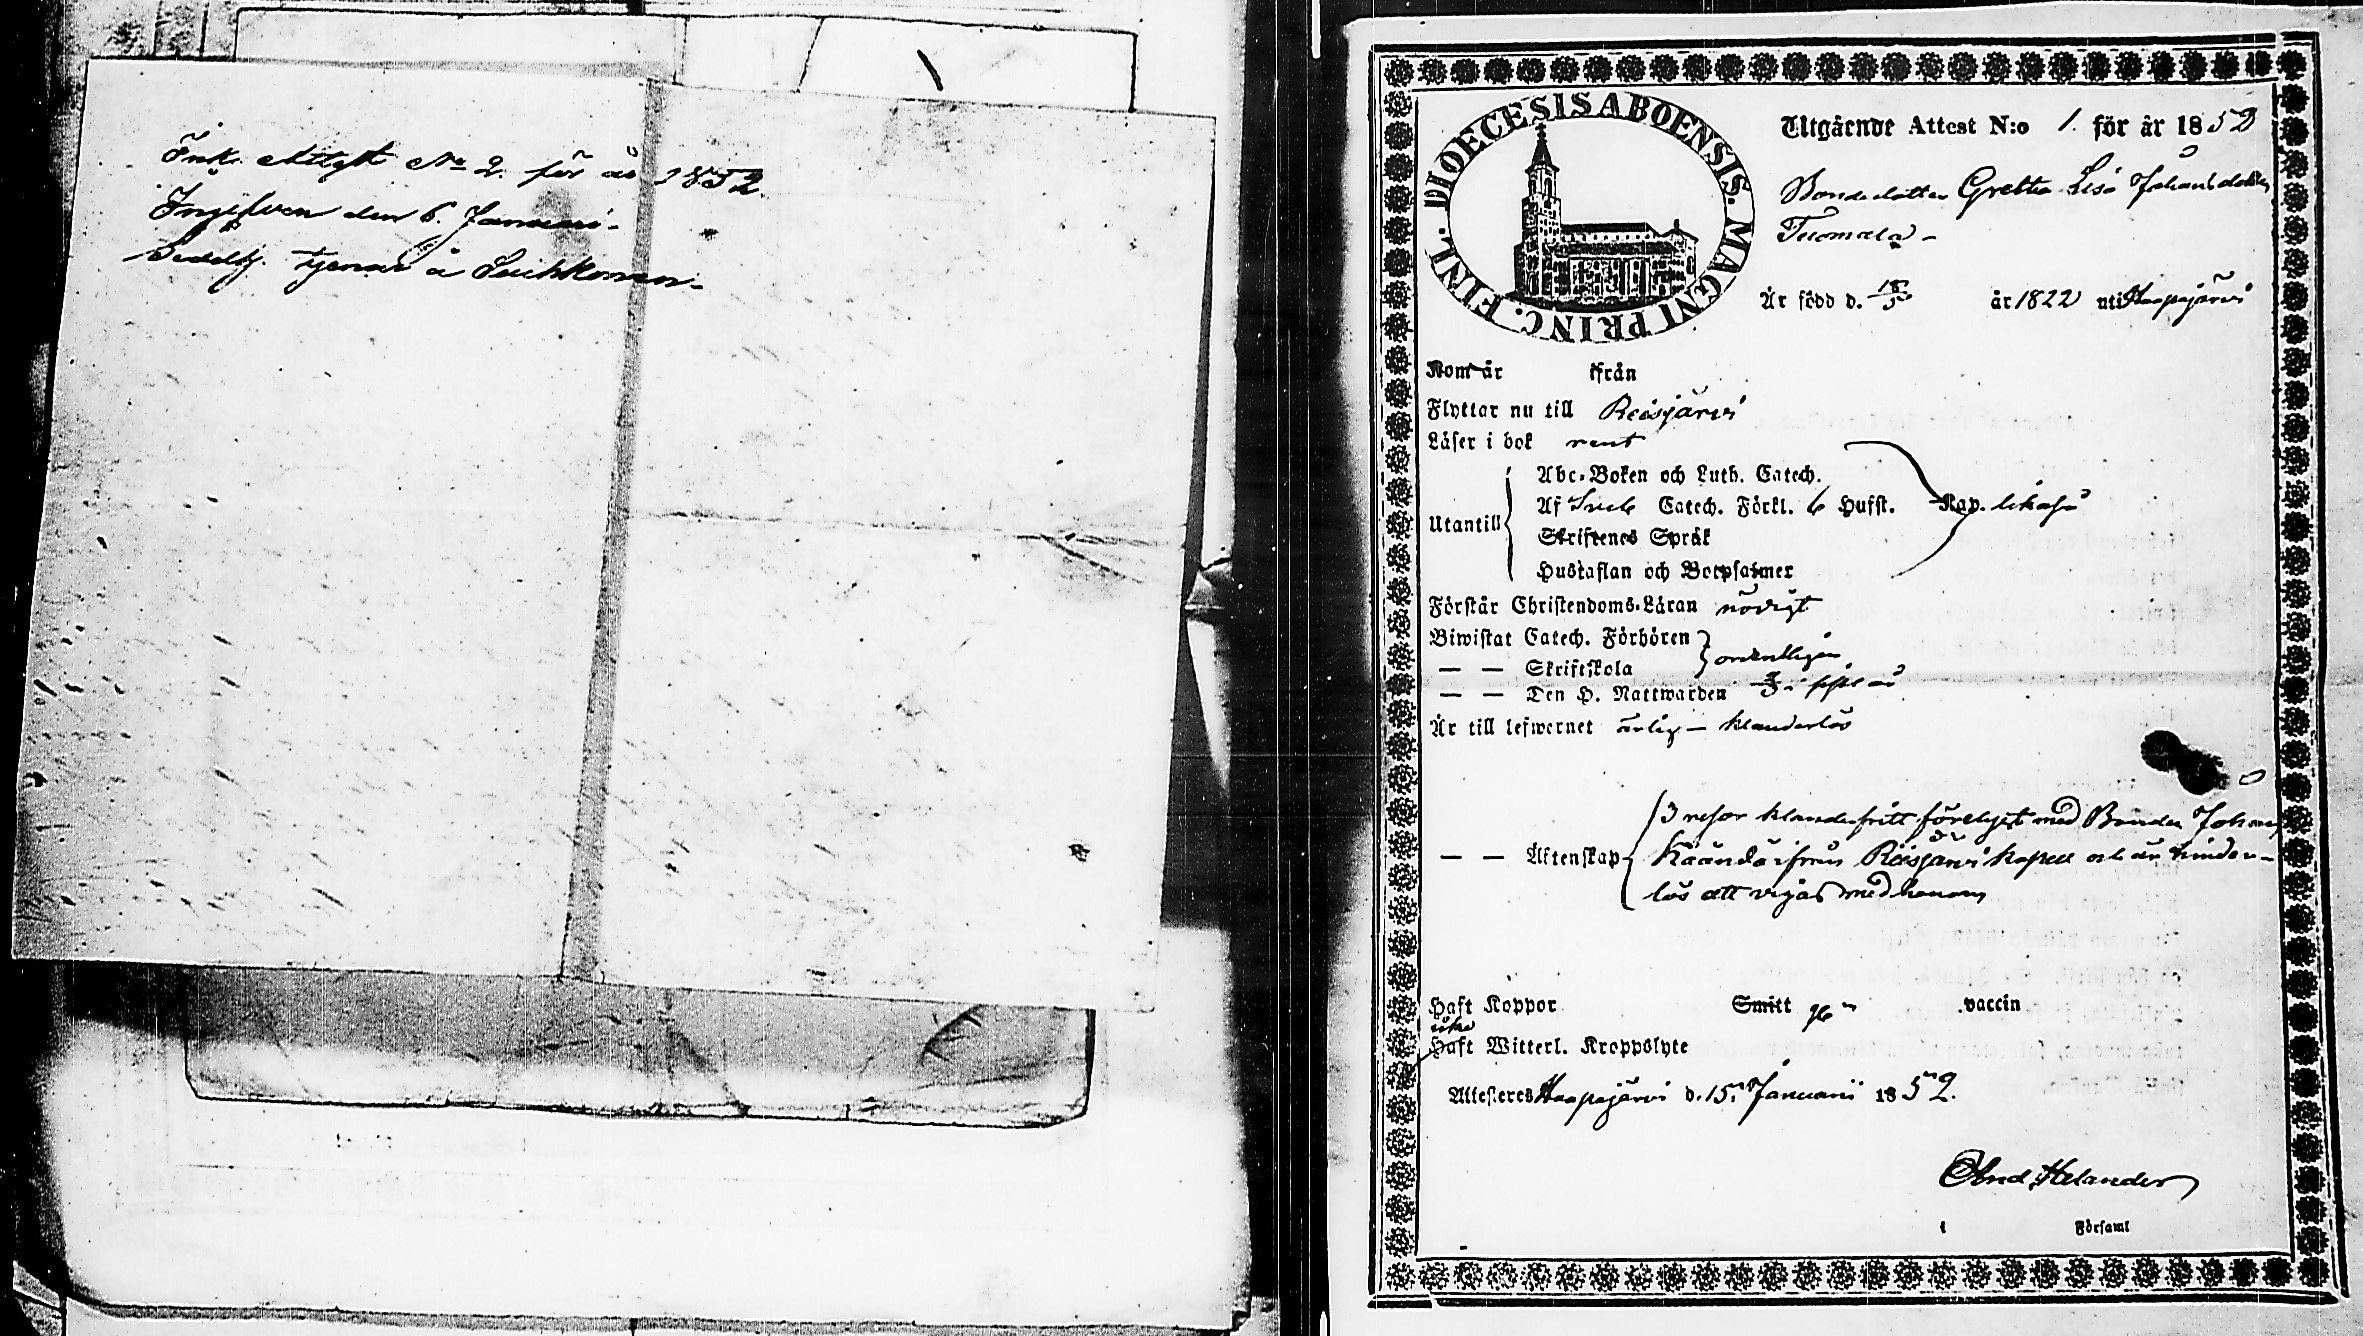 Ink. Attest No 2. för år 1852.
Ingifven den 6. Januari.
tjenar å
DIOECESIS ABOENSIS. MAGNI PRINC. FINL.
Utgående Attest N:o 1. för år 1852
Bondedotter Greta Lisa Johansdotter
Tuomala
Är född d. 18/5 år 1822 uti Haapajärvi
Kom år ifrån
Flyttar nu till Reisjärvi
Läser i bok rent
Abc-Boken och Luth. Catech.
Af Sveb Catech. Förkl. 6 Hufst. Kap. likaså
Utantill
Skriftenes Språk
Hustaflan och Botpsalmer
Förstår Christendoms-Läran nödigt
Biwistat Catech. Förhören
— — Skriftskola ordentligen
— — Den H. Nattwarden
Är till lefwernet ärlig — klanderlös
3 resor klanderfritt förelyst med Bonden Johan
— — Äktenskap Kääntä ifrån Reisjärvi kapell och är hinder-
lös att vigas med honom
Haft Koppor Smitt vaccin
icke
Haft Witterl. Kroppslyte
Attesteres Haapajärvi d. 15 Januarii 1852.
And. Helander
i Församl